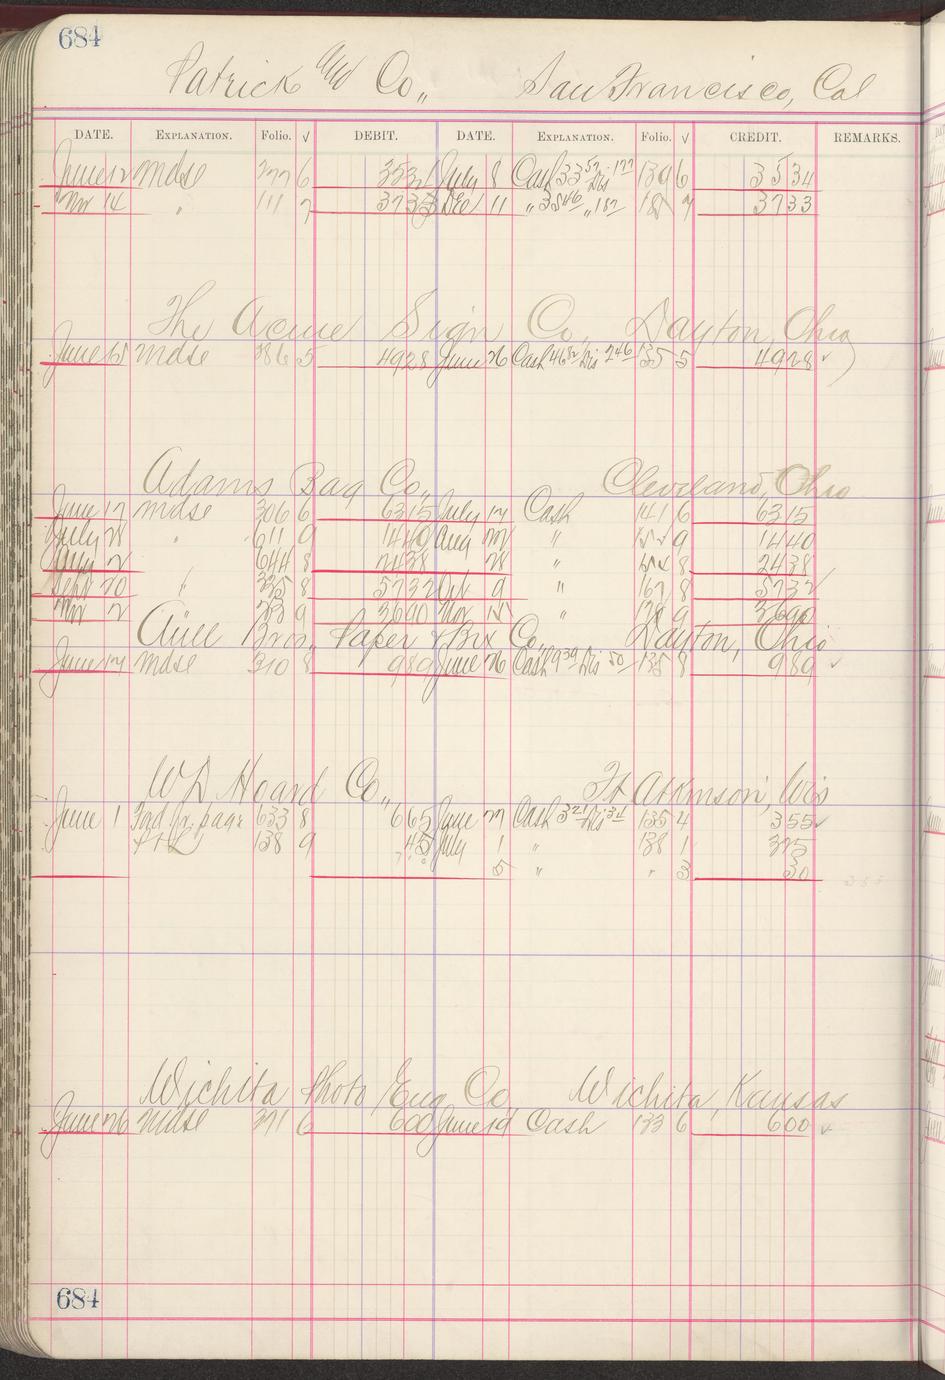 684
Patrick and Co,, San Francisco, Cal
DATE. EXPLANATION. Folio. √ DEBIT. DATE. EXPLANATION. Folio. √ CREDIT. REMARKS.
June 12 mdse 277 6 3534 July 8 Cash 33 57 Dis 1 77 139 6 3534
Nov 14 " 111 7 3733 Dec 11 " 35 46 " 1 87 187 7 3733
The Acme Sign Co,, Dayton, Ohio
June 15 mdse 286 5 4928 June 26 Cash 46 82 Dis 2 46 135 5 4928
Adams Bag Co,, Cleveland, Ohio
June 17 mdse 306 6 6315 July 17 Cash 141 6 6315
July 28 " 611 9 1440 Aug 22 " 9 1440
Aug 2 " 644 8 2438 28 " 8 2438
Sept 20 " 325 8 5732 Oct 9 " 167 8 5732
Nov 2 " 9 3690 Nov " 9 3690
Bros,, Paper & Box Co,, Dayton, Ohio
June 17 mdse 310 8 989 June 26 Cash 9 39 Dis 50 135 8 989
W D Hoard Co,, Ft Atkinson, Wis
June 1 Ford fr. page 633 8 665 June 27 Cash 3 21 Dis 34 135 4 355
138 9 45 July 1 " 138 1 325
5 " " 3 30
Wichita Photo Eng Co Wichita, Kansas
June 26 mdse 371 6 600 June 19 Cash 133 6 600
684